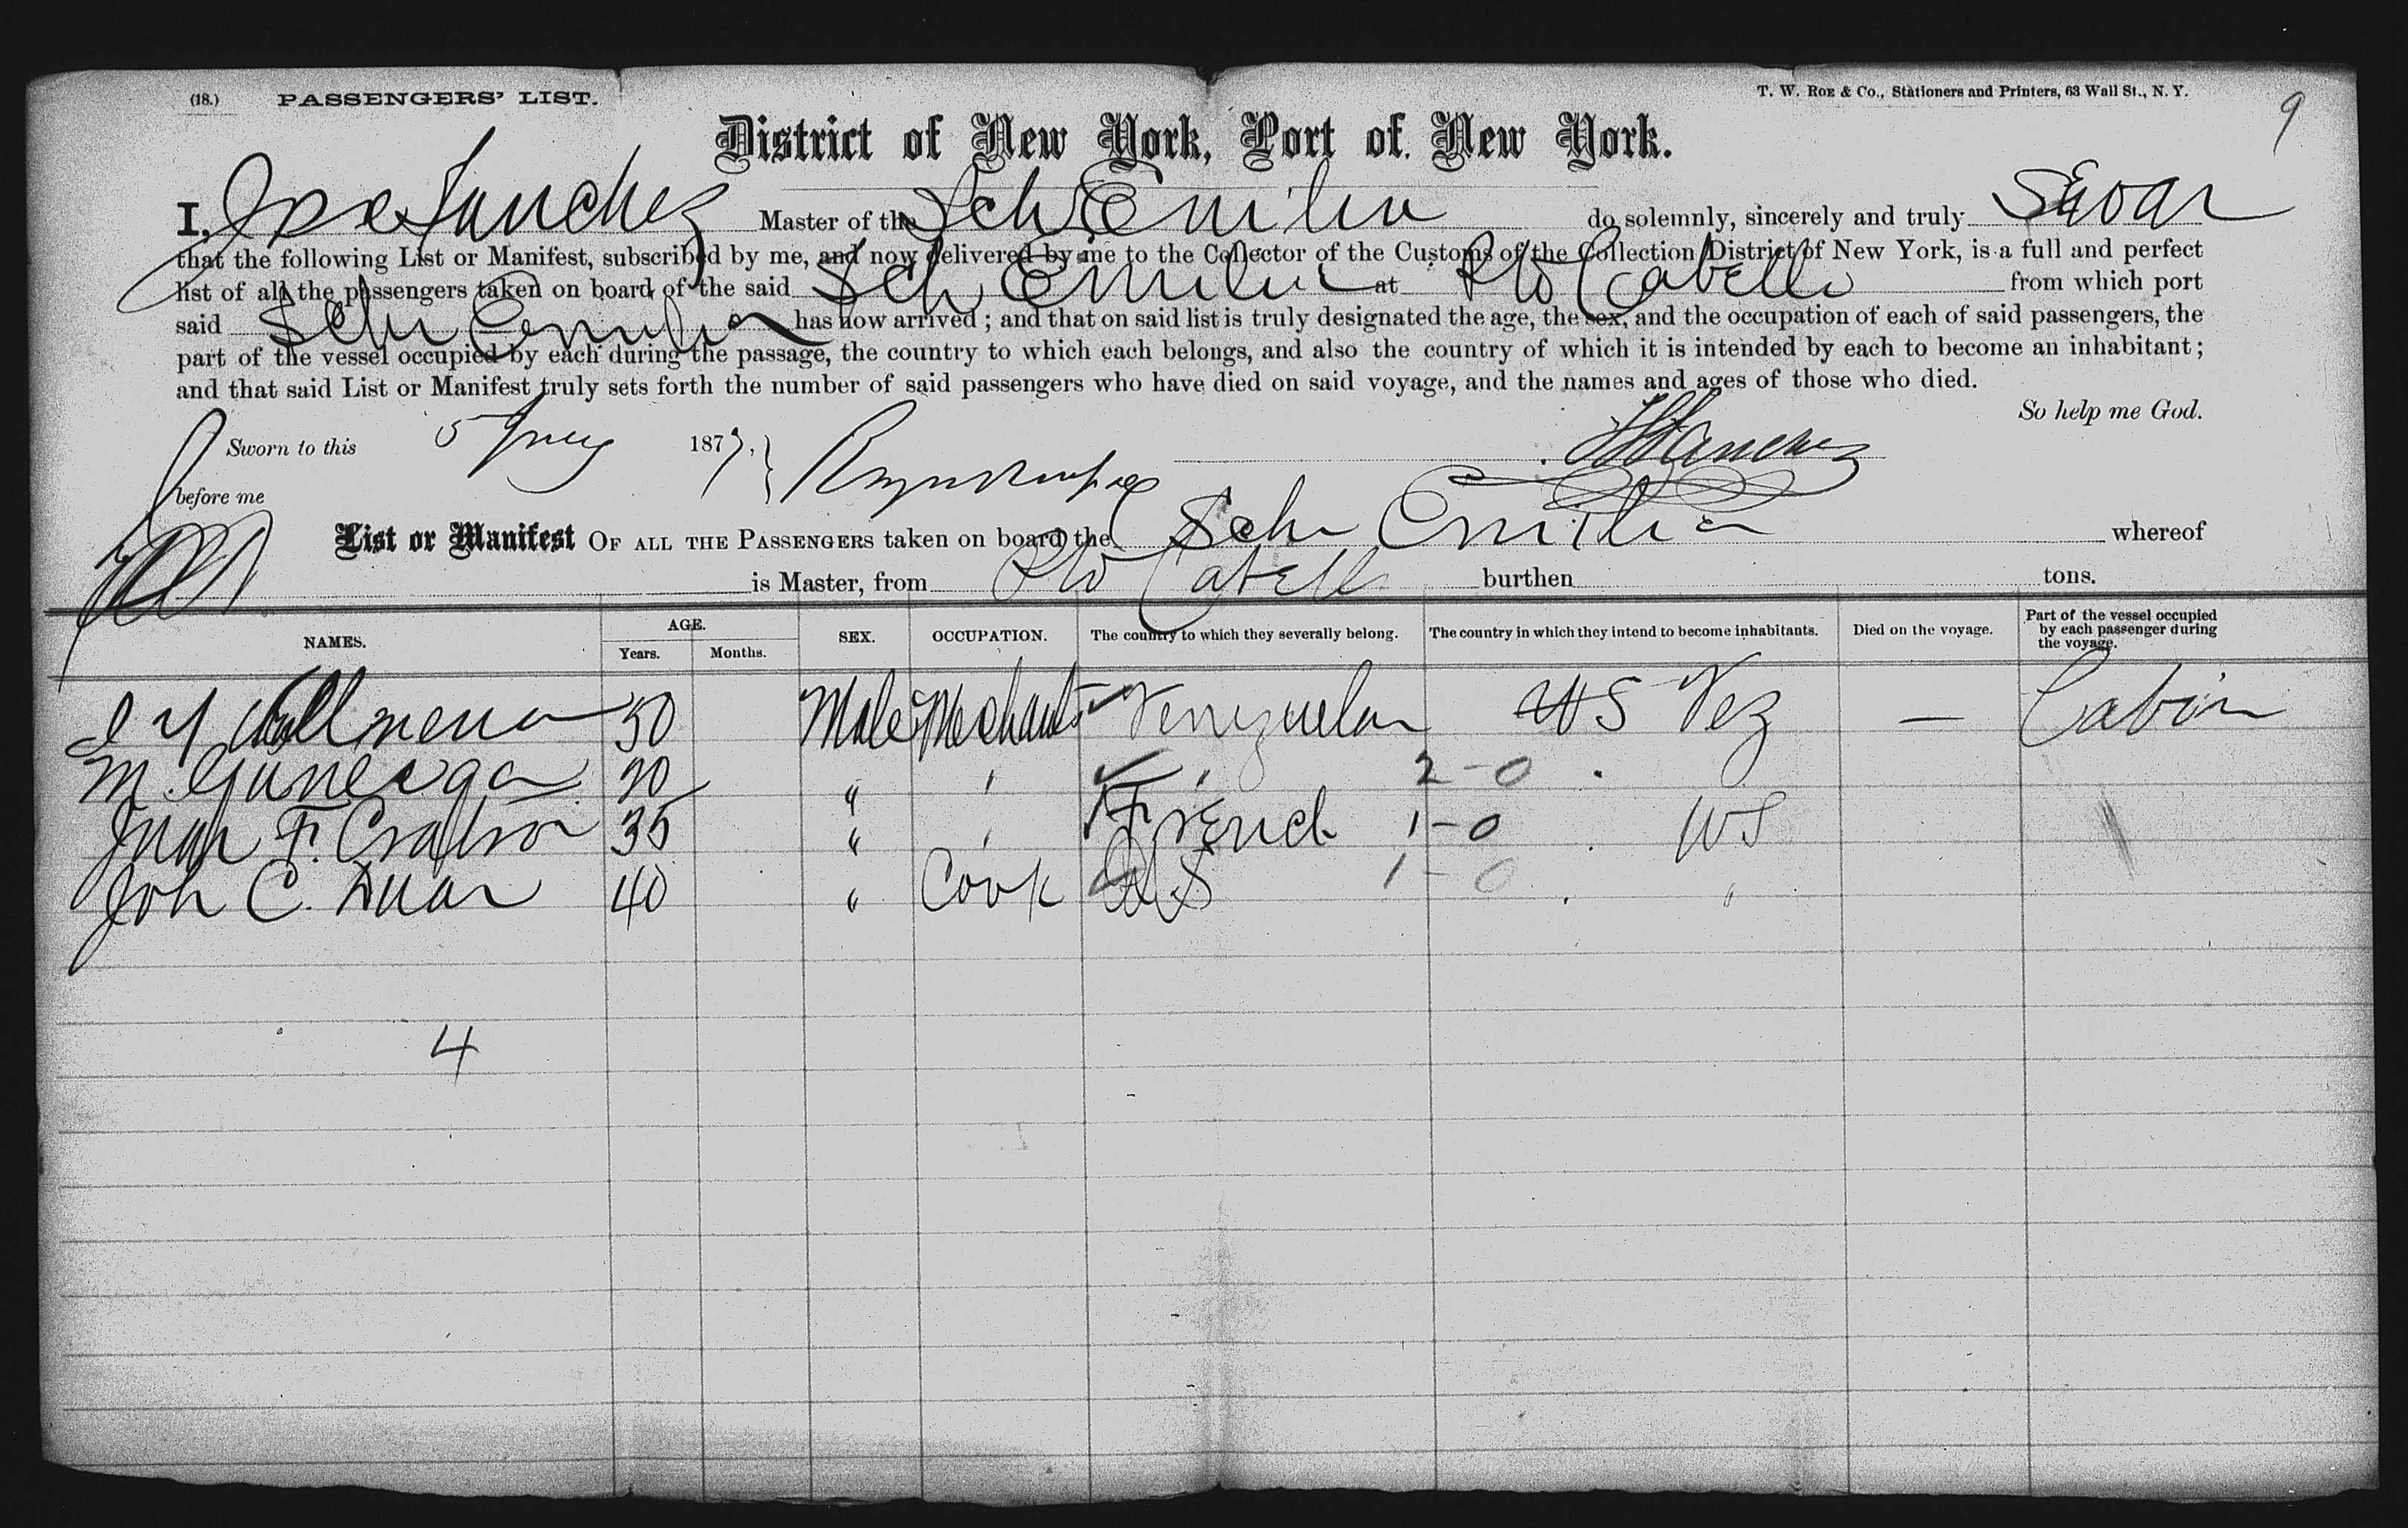 (18.) PASSENGERS' LIST. T. W. ROE & Co., Stationers and Printers, 63 Wall St., N. Y.
9
District of New York, Port of New York.
I, Sanchez Master of the Sch Emilia do solemnly, sincerely and truly Swear
that the following List or Manifest, subscribed by me, and now delivered by me to the Collector of the Customs of the Collection District of New York, is a full and perfect
list of all the passengers taken on board of the said Sch Emilia at Pto Cabello from which port
said Schr Emilia has now arrived; and that on said list is truly designated the age, the sex, and the occupation of each of said passengers, the
part of the vessel occupied by each during the passage, the country to which each belongs, and also the country of which it is intended by each to become an inhabitant;
and that said List or Manifest truly sets forth the number of said passengers who have died on said voyage, and the names and ages of those who died.
So help me God.
Sworn to this 5 1879, Sanchez
before me
List or Manifest OF ALL THE PASSENGERS taken on board the Schr Emilia whereof
is Master, from Pto Cabello burthen tons.
NAMES. AGE. Years. Months. SEX. OCCUPATION. The country to which they severally belong. The country in which they intend to become inhabitants. Died on the voyage. Part of the vessel occupied by each passenger during the voyage.
50 Male Venezuela US Vez — Cabin
M. 20 " ' " 2-0
Juan F. 35 " ' French 1-0 US
Joh C. 40 " Cook US 1-0 "
4